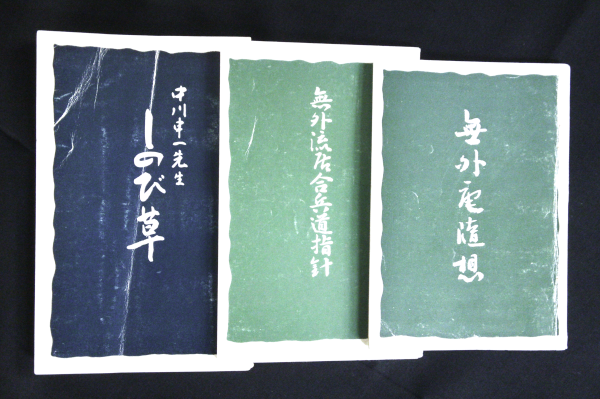 中川申一先生
しのび草
無外流居合兵道指針
無外庵随想